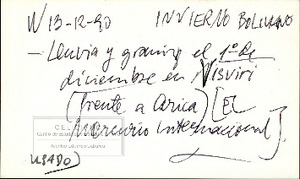 W/13-12-90 INVIERNO BOLIVIANO
– Lluvia y granizo el 1º de
diciembre en Visviri
(frente a Arica) [EL
Mercurio Internacional].
USADO)